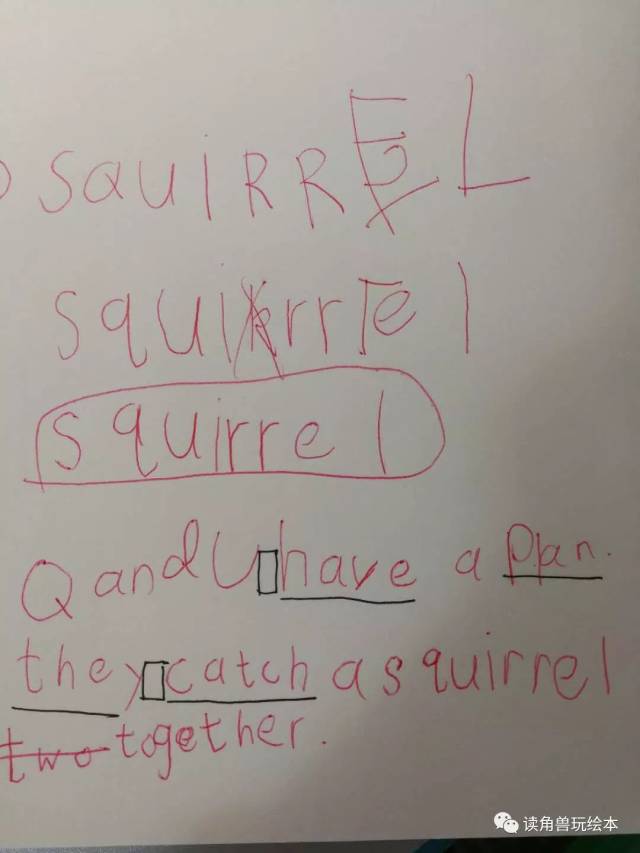 SQUIRREL
squirrel
squirrel
Q and U have a plan.
they catch a squirrel
two together.
读角兽玩绘本